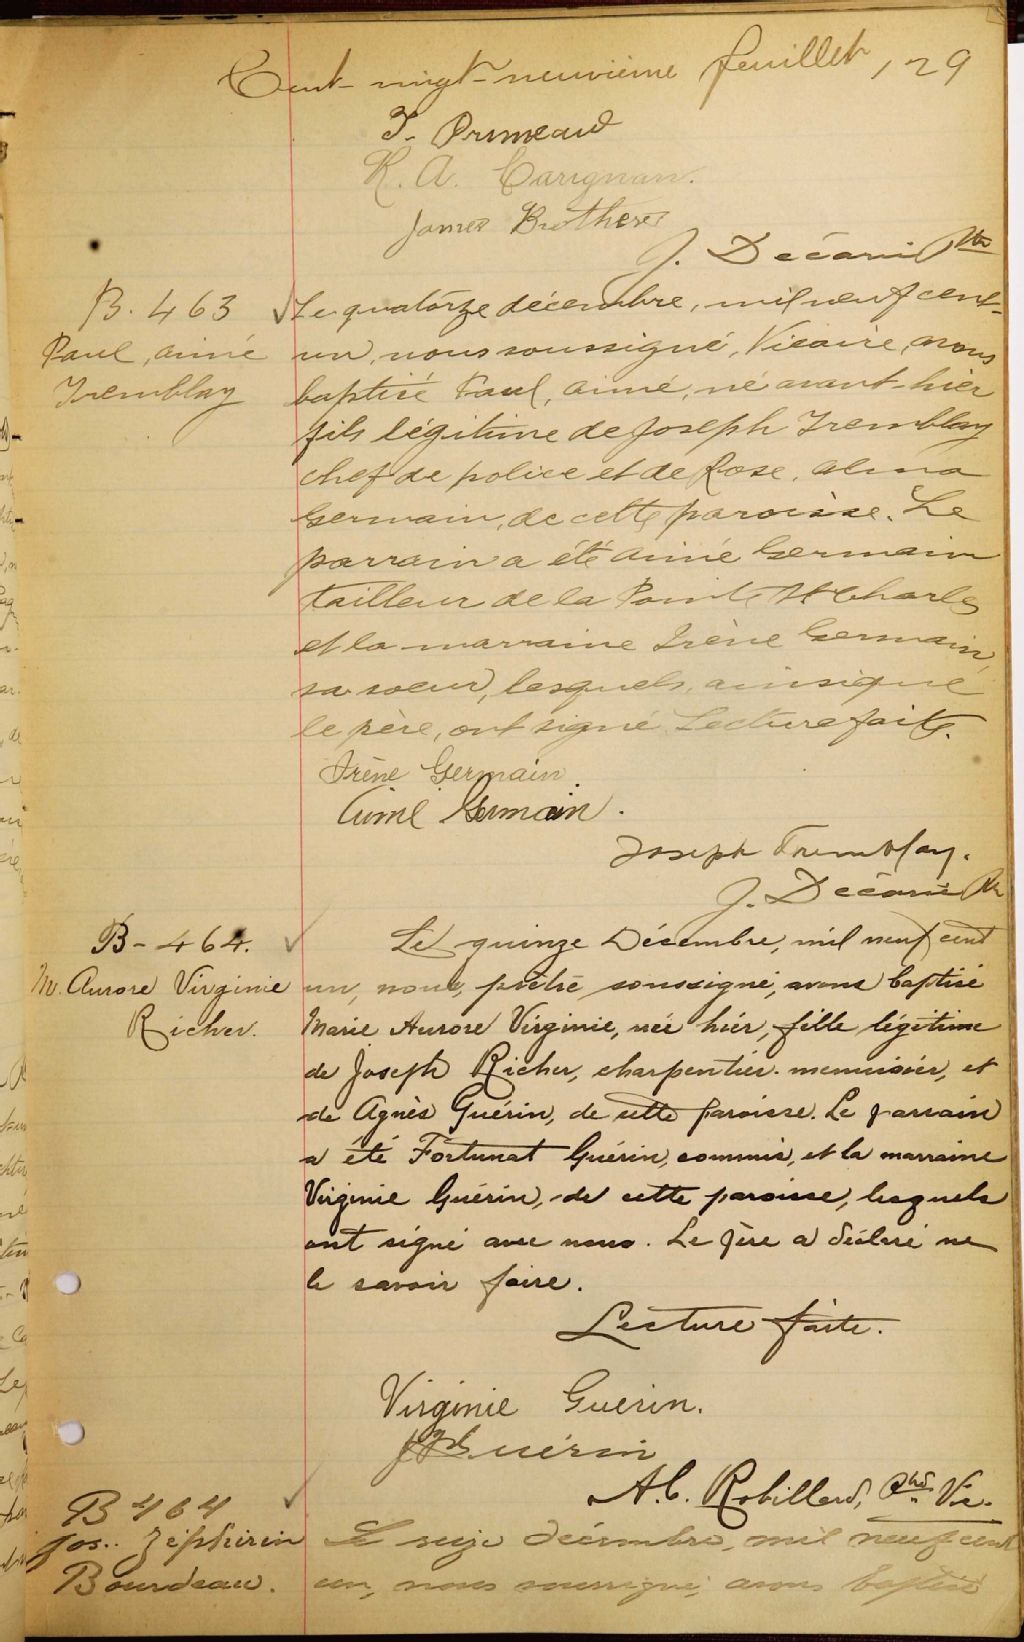 Cent-vingt-neuvième feuillet 129
T. Primeau
R. A. Carignan.
James Brothers
J. Décarie Ptre
B. 463
Paul, aimé
Tremblay
Le quatorze décembre, mil neuf cent-
un, nous soussigné, Vicaire, avons
baptisé Paul, aimé, né avant-hier
fils légitime de Joseph Tremblay
chef de police et de Rose, alma
Germain, de cette paroisse. Le
parrain a été aimé Germain
tailleur de la Pointe St Charles
et la marraine Irène Germain,
sa soeur, lesquels, ainsi que
le père, ont signé. Lecture faite.
Irène Germain.
Aimé Germain.
Joseph Tremblay.
J. Décarie Ptr
B-464.
M. Aurore Virginie
Richer.
Le quinze Décembre, mil neuf cent
un, nous, prêtre soussigné, avons baptisé
Marie Aurore Virginie, née hier, fille légitime
de Joseph Richer, charpentier-menuisier, et
de Agnès Guérin, de cette paroisse. Le parrain
a été Fortunat Guérin, commis, et la marraine
Virginie Guérin, de cette paroisse, lesquels
ont signé avec nous. Le père a déclaré ne
le savoir faire.
Lecture faite.
Virginie Guerin.
Guérin
A. C. Robillard, Ptre Vic.
B 464
Jos.. Zéphirin
Bourdeau.
Le seize décembre, mil neuf cent
un, nous soussigné, avons baptisé